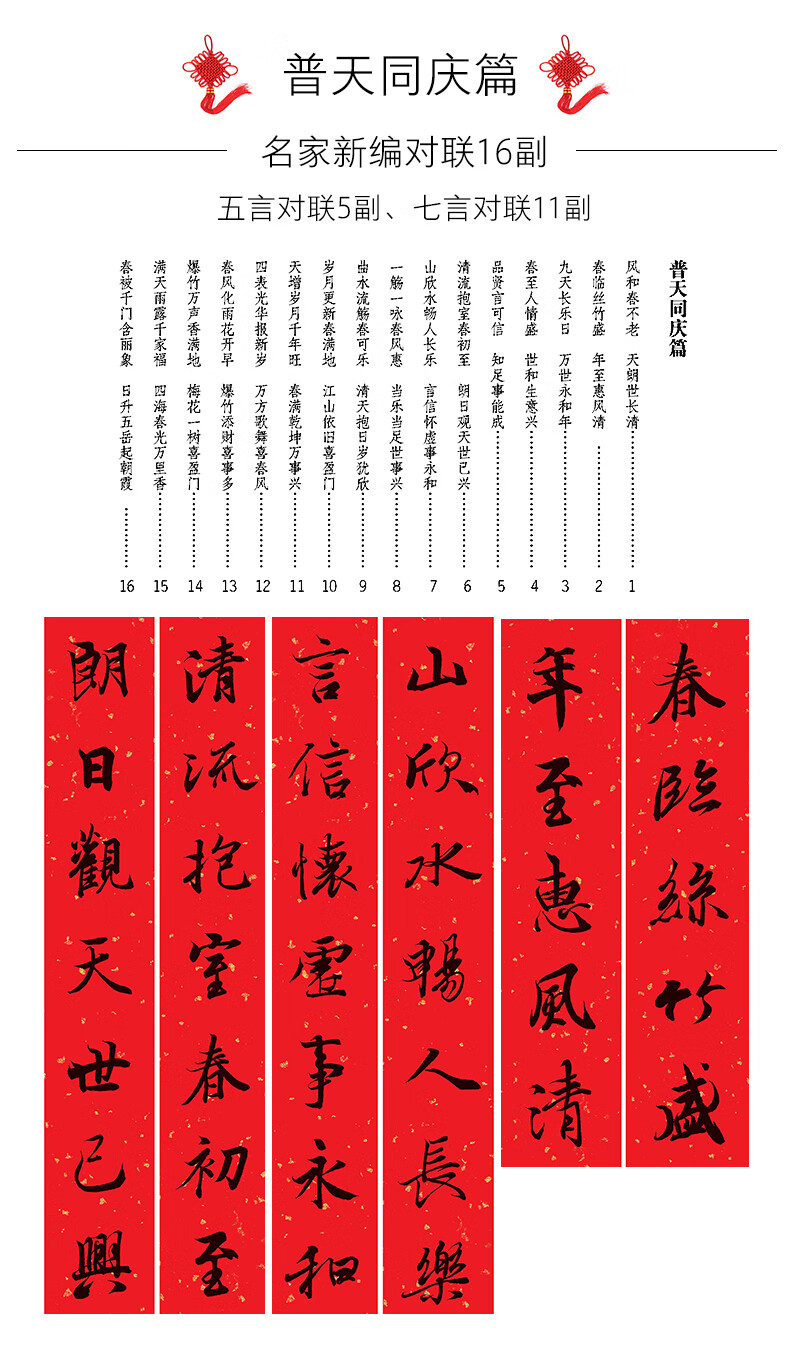 普天同庆篇
名家新编对联16副
五言对联5副、七言对联11副
普天同庆篇
风和春不老 天朗世长清 1
春临丝竹盛 年至惠风清 2
九天长乐日 万世永和年 3
春至人情盛 世和生意兴 4
品贤言可信 知足事能成 5
清流抱室春初至 朗日观天世已兴 6
山欣水畅人长乐 言信怀虚事永和 7
一觞一咏春风惠 当乐当足世事兴 8
曲水流觞春可乐 清天抱日岁犹欣 9
岁月更新春满地 江山依旧喜盈门 10
天增岁月千年旺 春满乾坤万事兴 11
四表光华报新岁 万方歌舞喜春风 12
春风化雨花开早 爆竹添财喜事多 13
爆竹万声香满地 梅花一树喜盈门 14
满天雨露千家福 四海春光万里香 15
春被千门含丽象 日升五岳起朝霞 16
春臨絲竹盛
年至惠風清
山欣水暢人長樂
言信懷虛事永和
清流抱室春初至
朗日觀天世已興